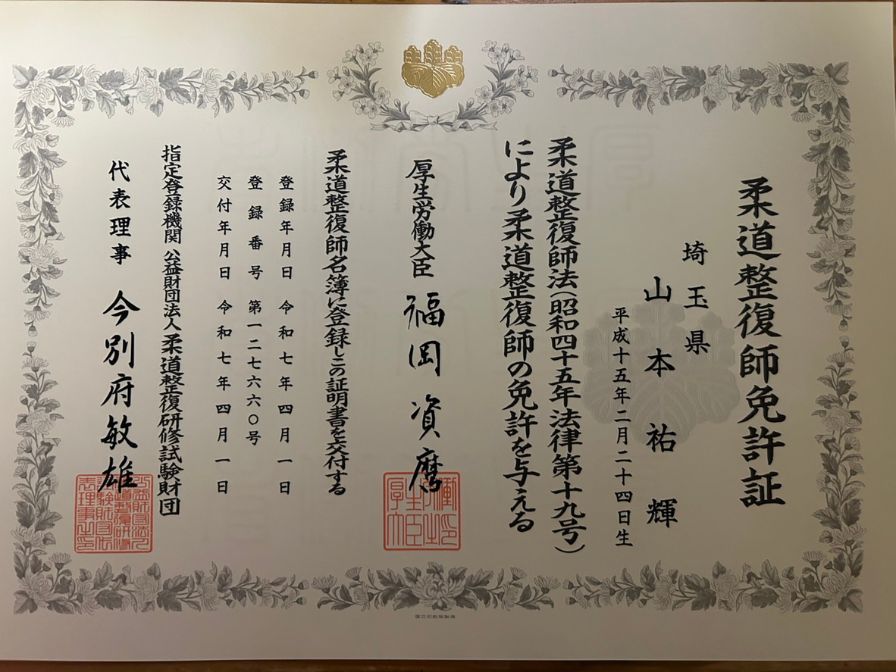 柔道整復師免許証
埼玉県
山本祐輝
平成十五年二月二十四日生
柔道整復師法(昭和四十五年法律第十九号)
により柔道整復師の免許を与える
厚生労働大臣 福岡資麿
柔道整復師名簿に登録しこの証明書を交付する
登録年月日 令和七年四月一日
登録番号 第一二七六六〇号
交付年月日 令和七年四月一日
指定登録機関 公益財団法人 柔道整復研修試験財団
代表理事 今別府敏雄